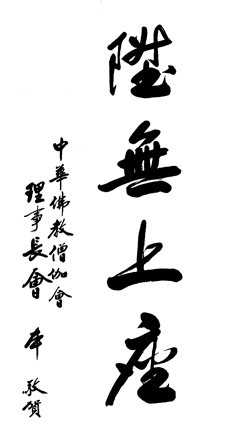 陞無上座
中華佛教僧伽會
理事長會本 敬賀